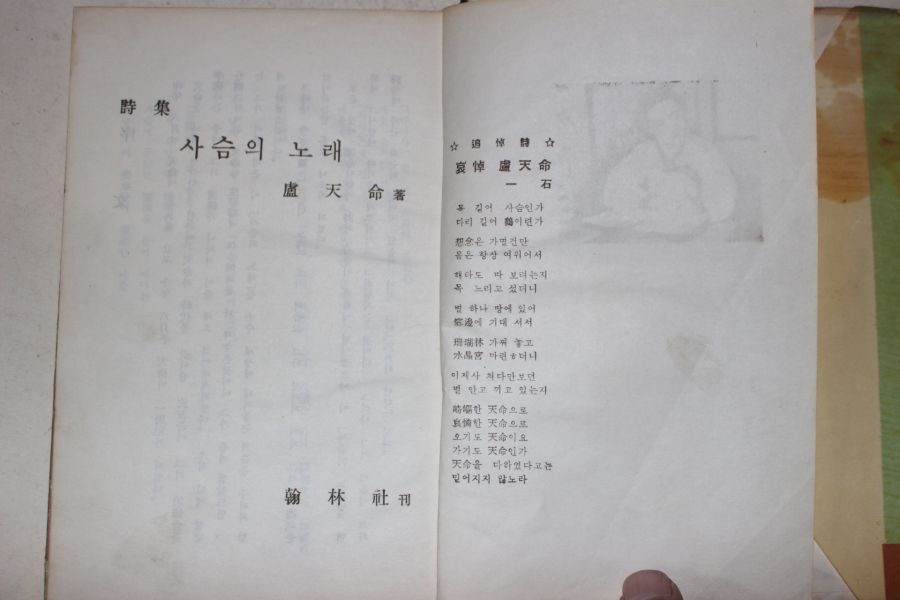 詩集
사슴의 노래
盧天命 著
翰林社 刊
☆ 追悼詩 ☆
哀悼 盧天命
一石
목 길어 사슴인가
다리 길어 鶴이런가
想念은 가멸건만
몸은 항상 여위어서
해라도 따 보려는지
목 느리고 섰더니
별 하나 땅에 있어
窓邊에 기대 서서
珊瑚林 가꿔 놓고
水晶宮 마련ㅎ더니
이제사 쳐다만보던
별 안고 끼고 있는지
한 天命으로
한 天命으로
오기도 天命이요
가기도 天命인가
天命을 다하였다고는
믿어지지 않노라